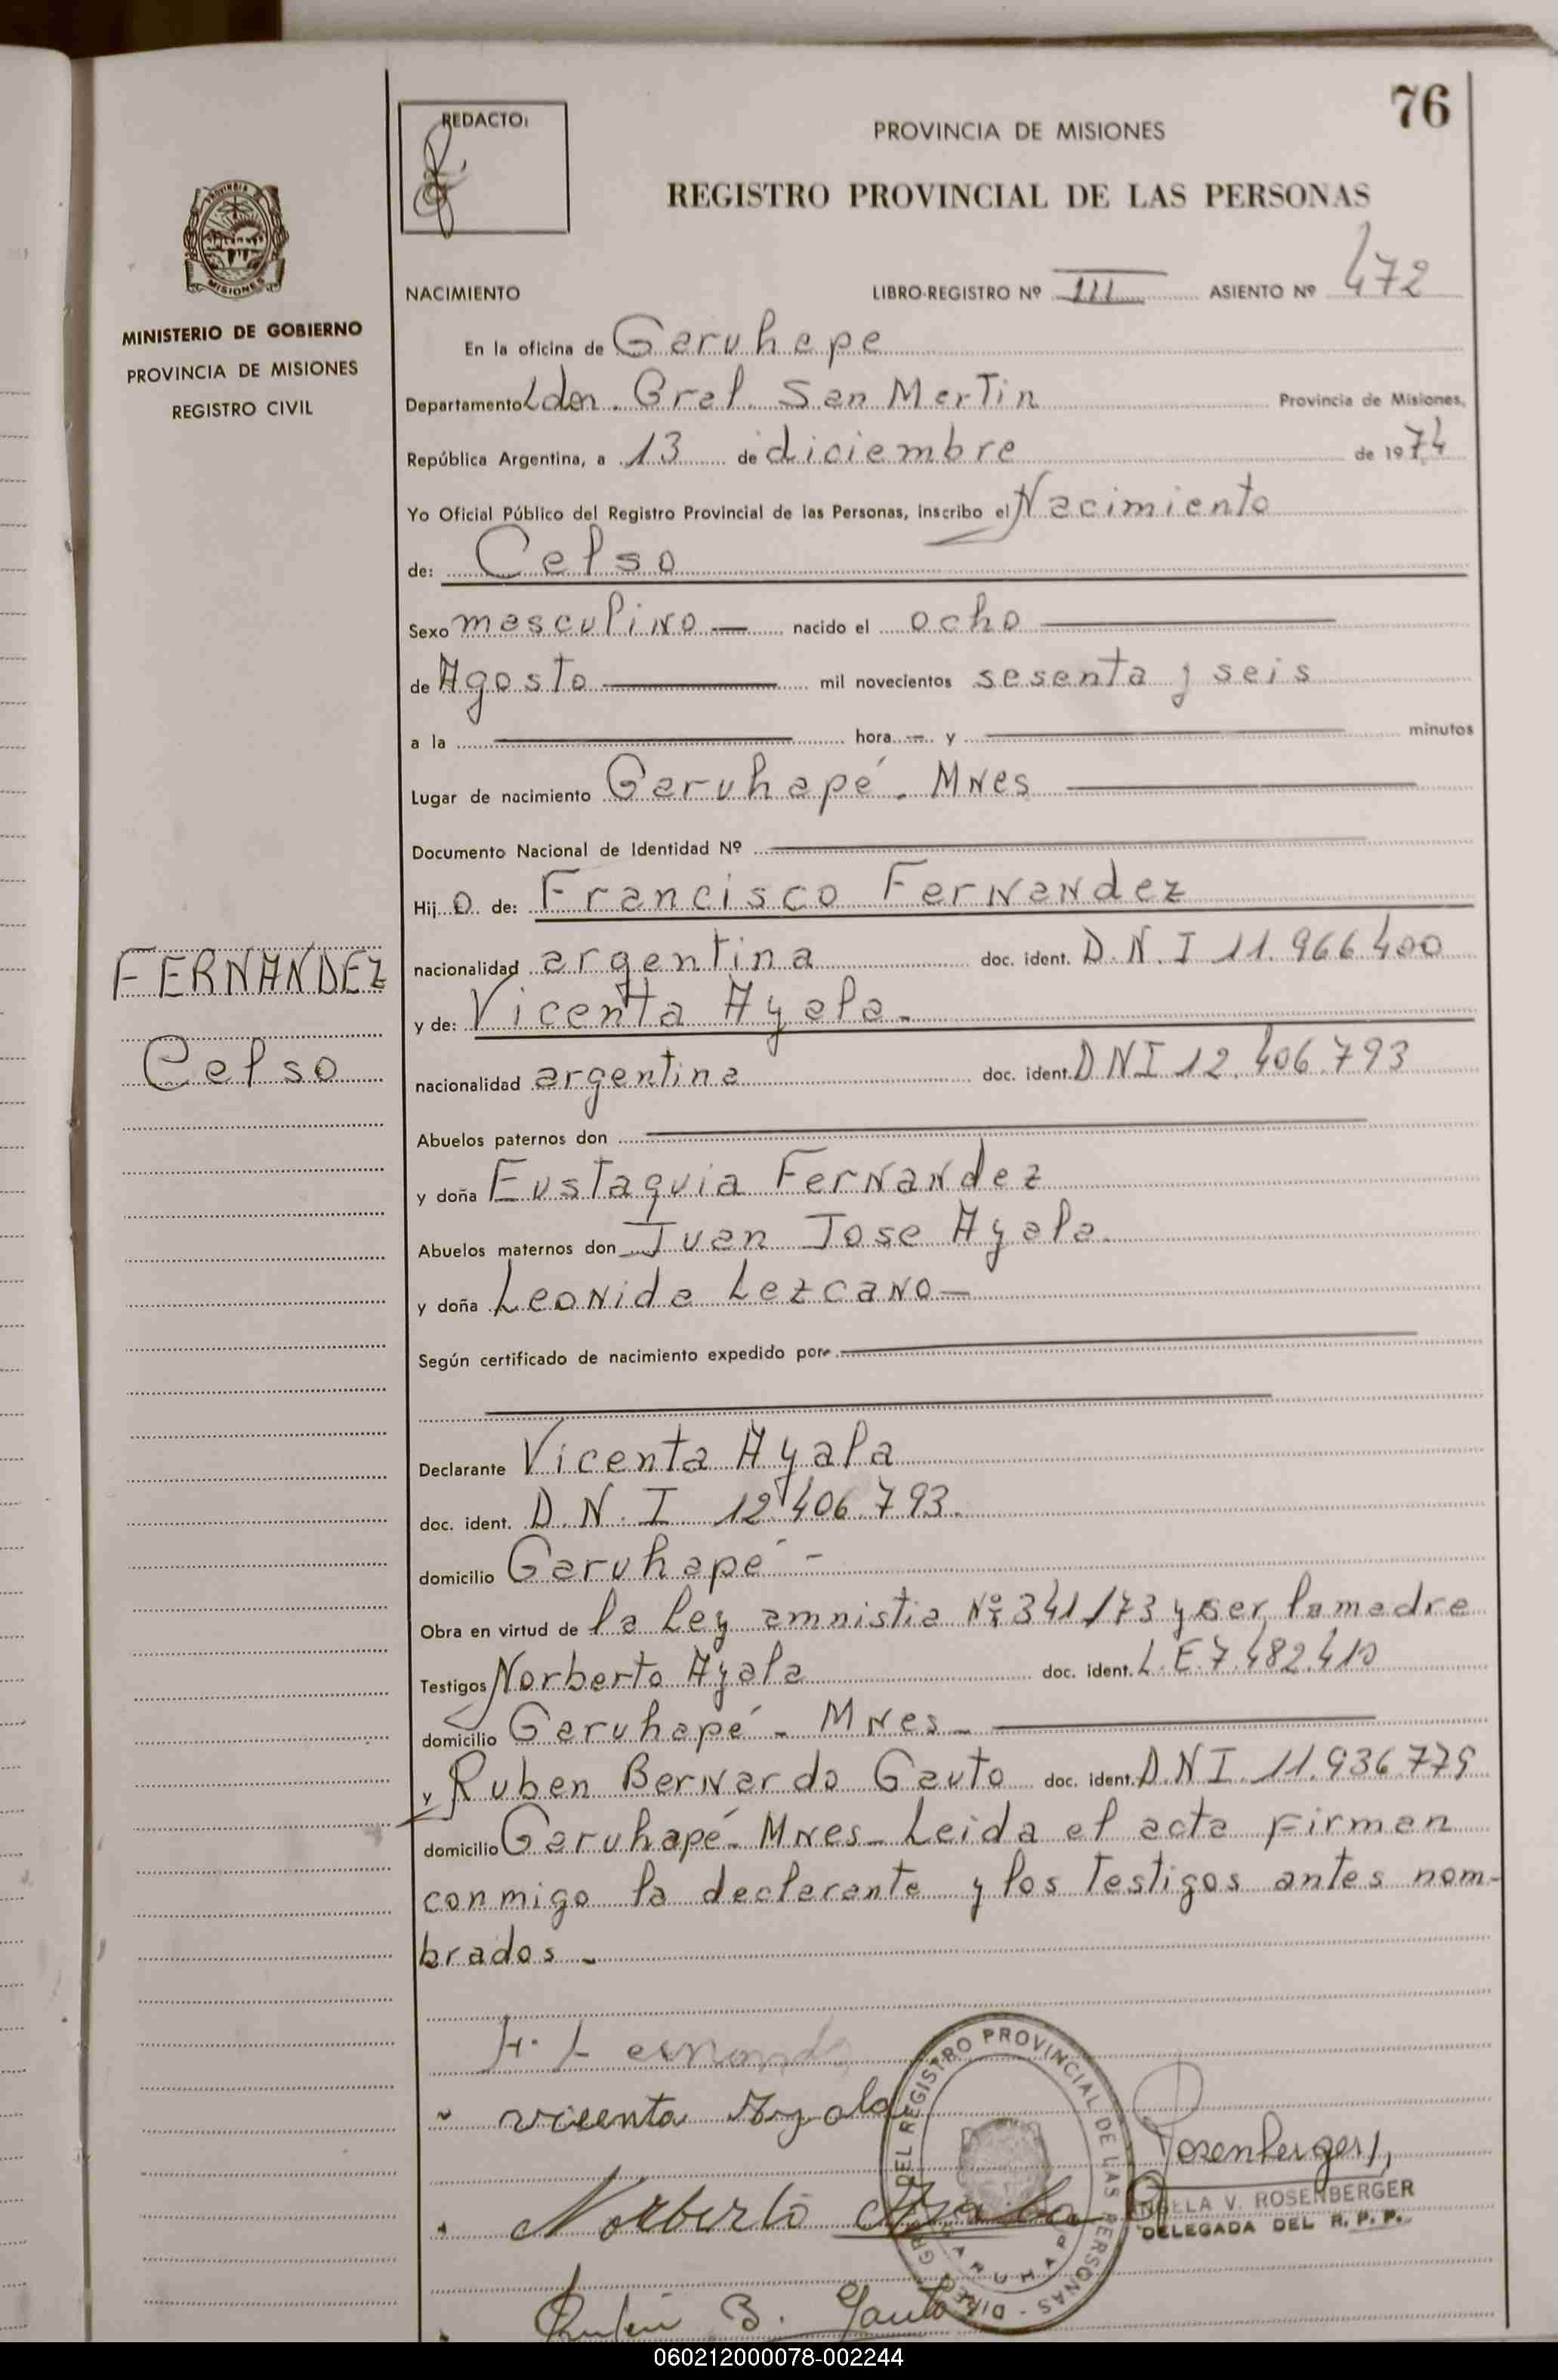 76
REDACTO:
PROVINCIA DE MISIONES
REGISTRO PROVINCIAL DE LAS PERSONAS
PROVINCIA
MISIONES
MINISTERIO DE GOBIERNO
PROVINCIA DE MISIONES
REGISTRO CIVIL
NACIMIENTO LIBRO-REGISTRO Nº III ASIENTO Nº 472
En la oficina de Garuhape
Departamento Ldor. Gral. San Martin Provincia de Misiones,
República Argentina, a 13 de diciembre de 1974
Yo Oficial Público del Registro Provincial de las Personas, inscribo el Nacimiento
de: Celso
Sexo masculino — nacido el ocho
de Agosto mil novecientos sesenta y seis
a la hora y minutos
Lugar de nacimiento Garuhapé. Mnes
Documento Nacional de Identidad Nº
Hijo de: Francisco Fernandez
nacionalidad argentina doc. ident. D.N.I 11.966.400
y de: Vicenta Ayala.
nacionalidad argentina doc. ident. DNI 12.406.793
Abuelos paternos don
y doña Eustaquia Fernandez
Abuelos maternos don Juan Jose Ayala.
y doña Leonida Lezcano —
Según certificado de nacimiento expedido por
Declarante Vicenta Ayala
doc. ident. D.N.I 12.406.793.
domicilio Garuhapé -
Obra en virtud de la Ley amnistia Nº 341/73 y ser la madre
Testigos Norberto Ayala doc. ident. L.E. 7.482.410
domicilio Garuhapé - Mnes -
y Ruben Bernardo Gauto doc. ident. D.N.I. 11.936.779
domicilio Garuhapé - Mnes - Leida el acta firman
conmigo la declarante y los testigos antes nom-
brados -
FERNANDEZ
Celso
Vicenta Ayala
Norberto Ayala
Rubén B. Gauto
DEL REGISTRO PROVINCIAL DE LAS PERSONAS
Rosenberger
ANGELA V. ROSENBERGER
DELEGADA DEL R. P. P.
060212000078-002244